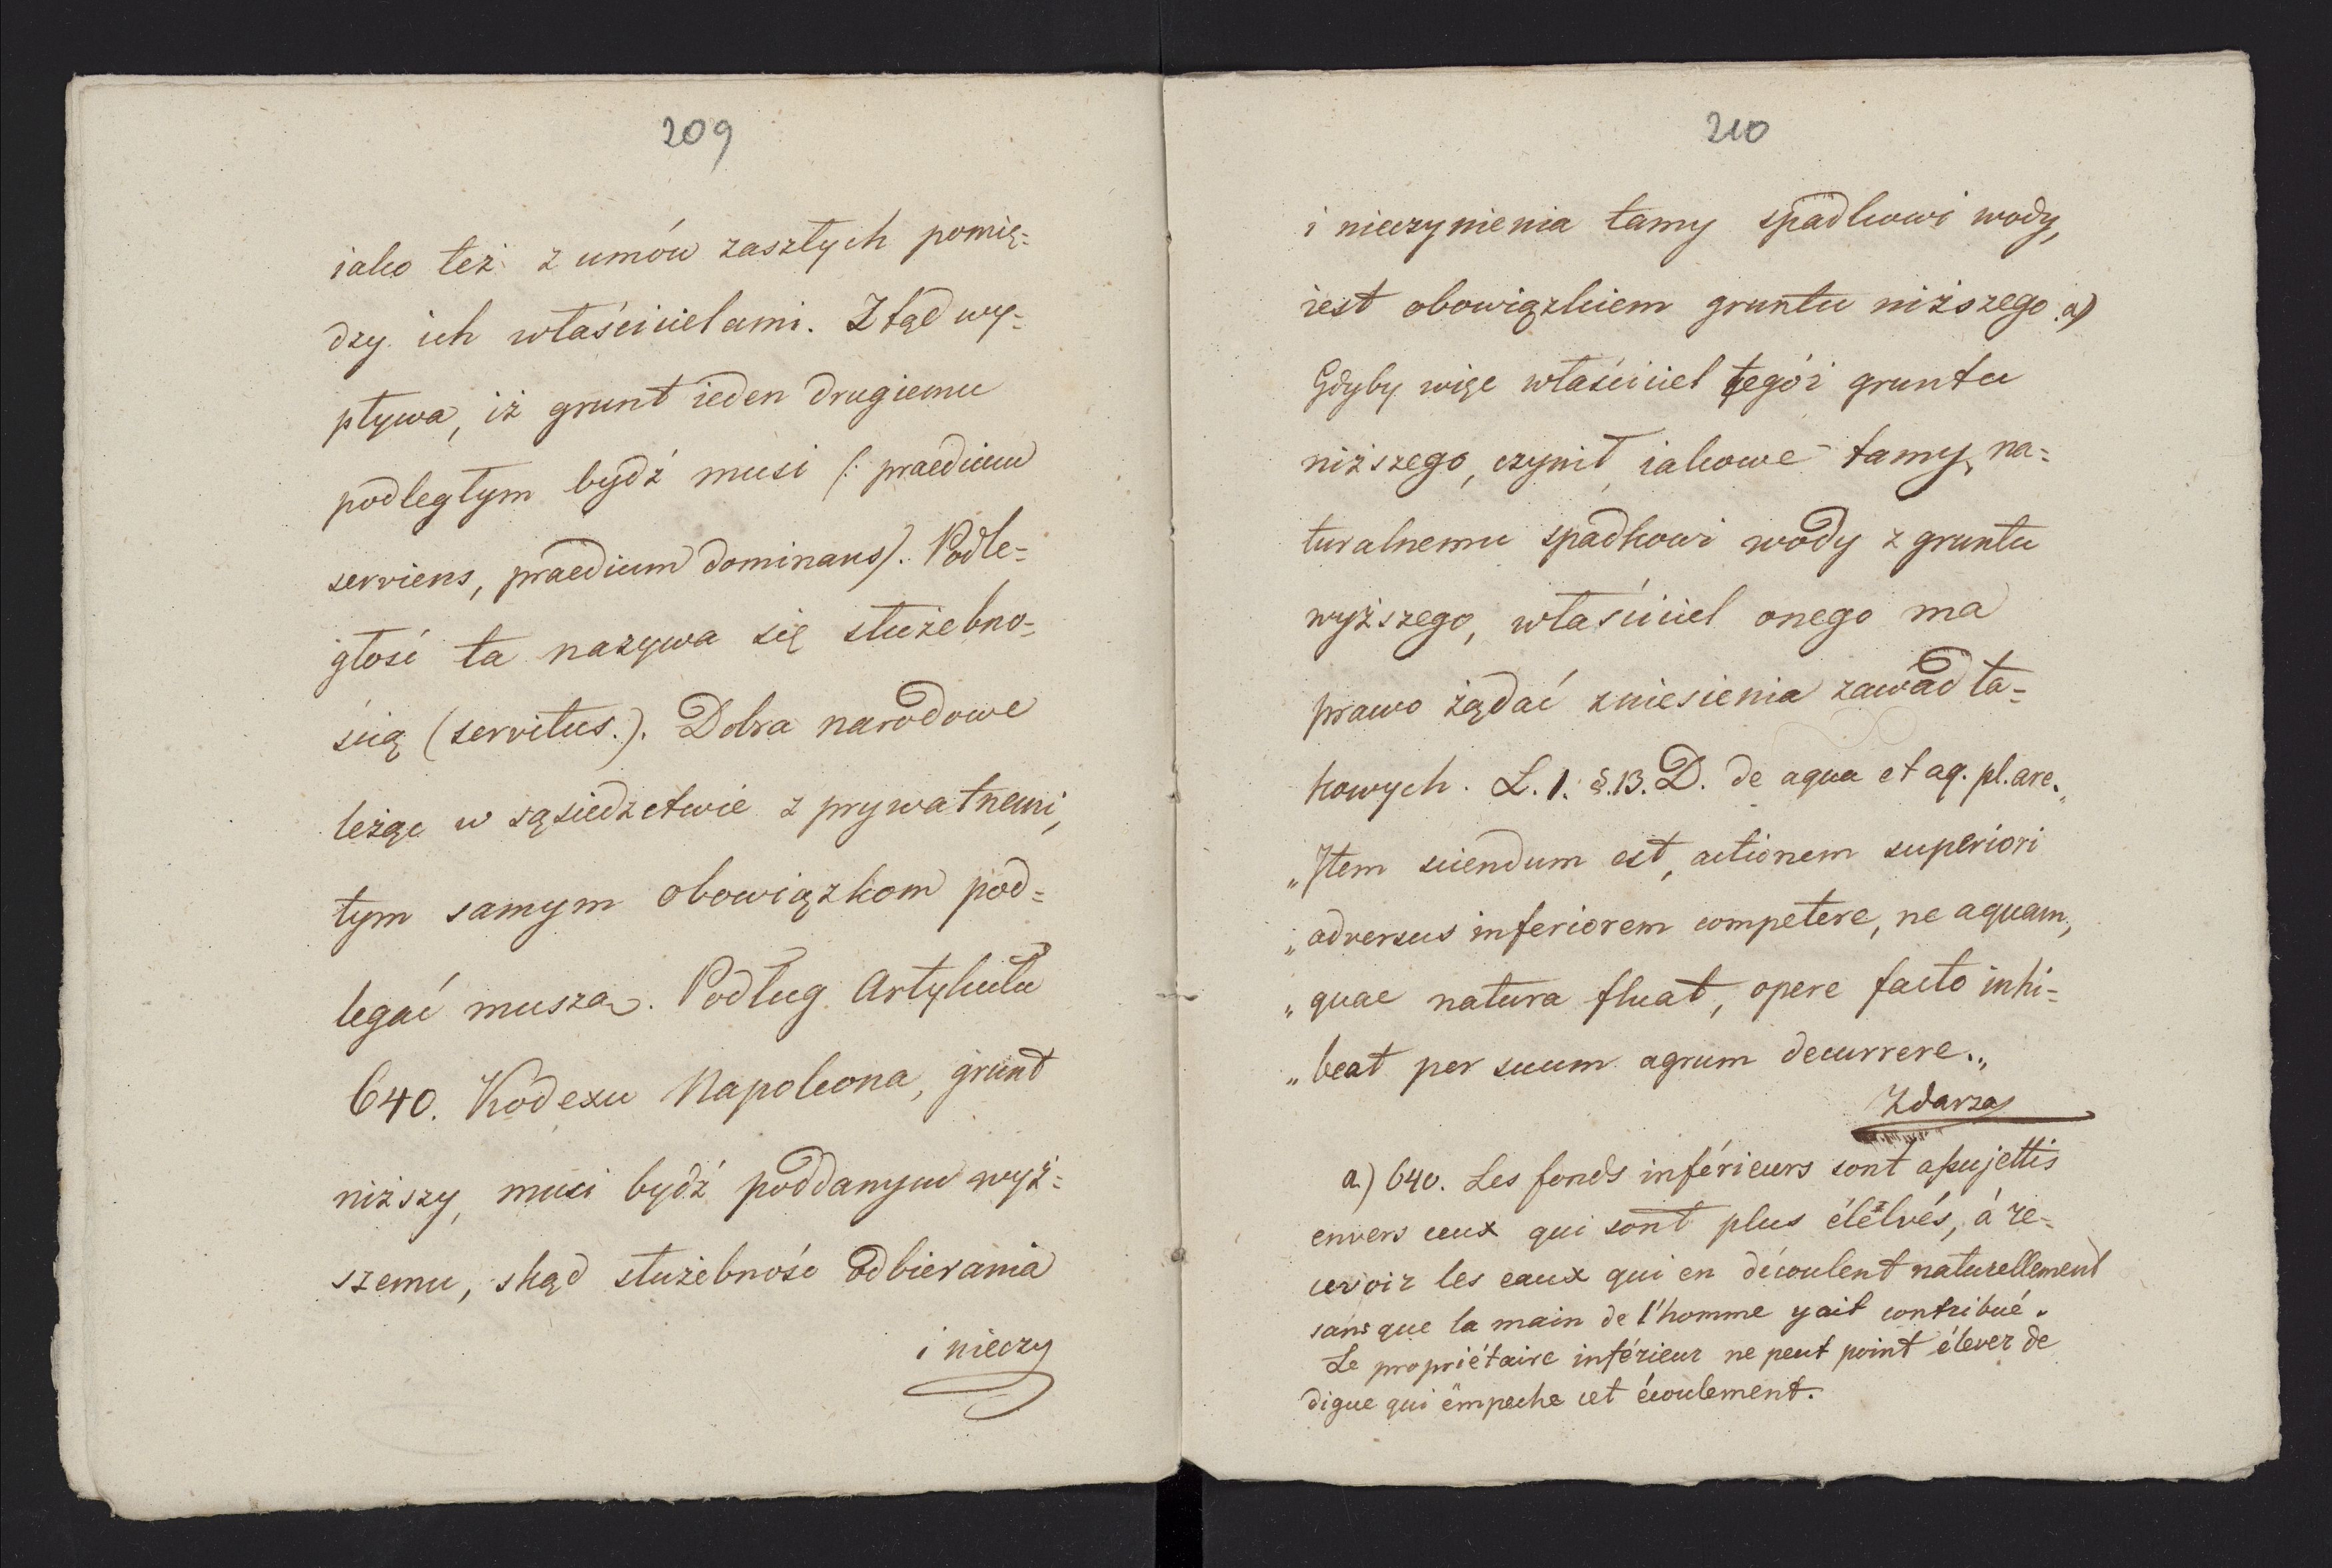 209
iako też z umów zaszłych pomię=
dzy ich właścicielami. Ztąd wy=
pływa, iż grunt ieden drugiemu
podległym bydź musi (: praedium
serviens, praedium dominans). Podle=
głość ta nazywa się służebno=
ścią (servitus.). Dobra narodowe
leżąc w sąsiedzctwie z prywatnemi,
tym samym obowiązkom pod=
legać muszą. Podług Artykułu
640. Kodexu Napoleona, grunt
niższy, musi bydź poddanym wyż=
szemu, skąd służebność odbierania
i nieczy
210
i nieczynienia tamy spadkowi wody,
iest obowiązkiem gruntu niższego. a)
Gdyby więc właściciel tegóż gruntu
niższego, czynił iakowe tamy, na=
turalnemu spadkowi wody z gruntu
wyższego, właściciel onego ma
prawo żądać zniesienia zawad ta=
kowych. L. 1. §. 13. D. de aqua et aq. pl. arc.„
„Item sciendum est, actionem superiori
„adversus inferiorem competere, ne aquam,
„quae natura fluat, opere facto inhi=
„beat per suum agrum decurrere.„
Zdarza
a) 640. Les fonds inférieurs sont assujettis
envers ceux qui sont plus élélvés, à re=
cevoir les eaux qui en découlent naturellement
sans que la main de l'homme y ait contribué.
Le propriétaire inférieur ne peut point élever de
digue qui empeche cet écoulement.